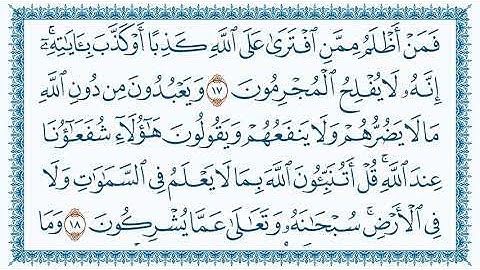 فَمَنْ أَظْلَمُ مِمَّنِ ٱفْتَرَىٰ عَلَى ٱللَّهِ كَذِبًا أَوْ كَذَّبَ بِـَٔايَـٰتِهِۦٓ ۚ
إِنَّهُۥ لَا يُفْلِحُ ٱلْمُجْرِمُونَ ١٧ وَيَعْبُدُونَ مِن دُونِ ٱللَّهِ
مَا لَا يَضُرُّهُمْ وَلَا يَنفَعُهُمْ وَيَقُولُونَ هَـٰٓؤُلَآءِ شُفَعَـٰٓؤُنَا
عِندَ ٱللَّهِ ۚ قُلْ أَتُنَبِّـُٔونَ ٱللَّهَ بِمَا لَا يَعْلَمُ فِى ٱلسَّمَـٰوَٰتِ وَلَا
فِى ٱلْأَرْضِ ۚ سُبْحَـٰنَهُۥ وَتَعَـٰلَىٰ عَمَّا يُشْرِكُونَ ١٨ وَمَا